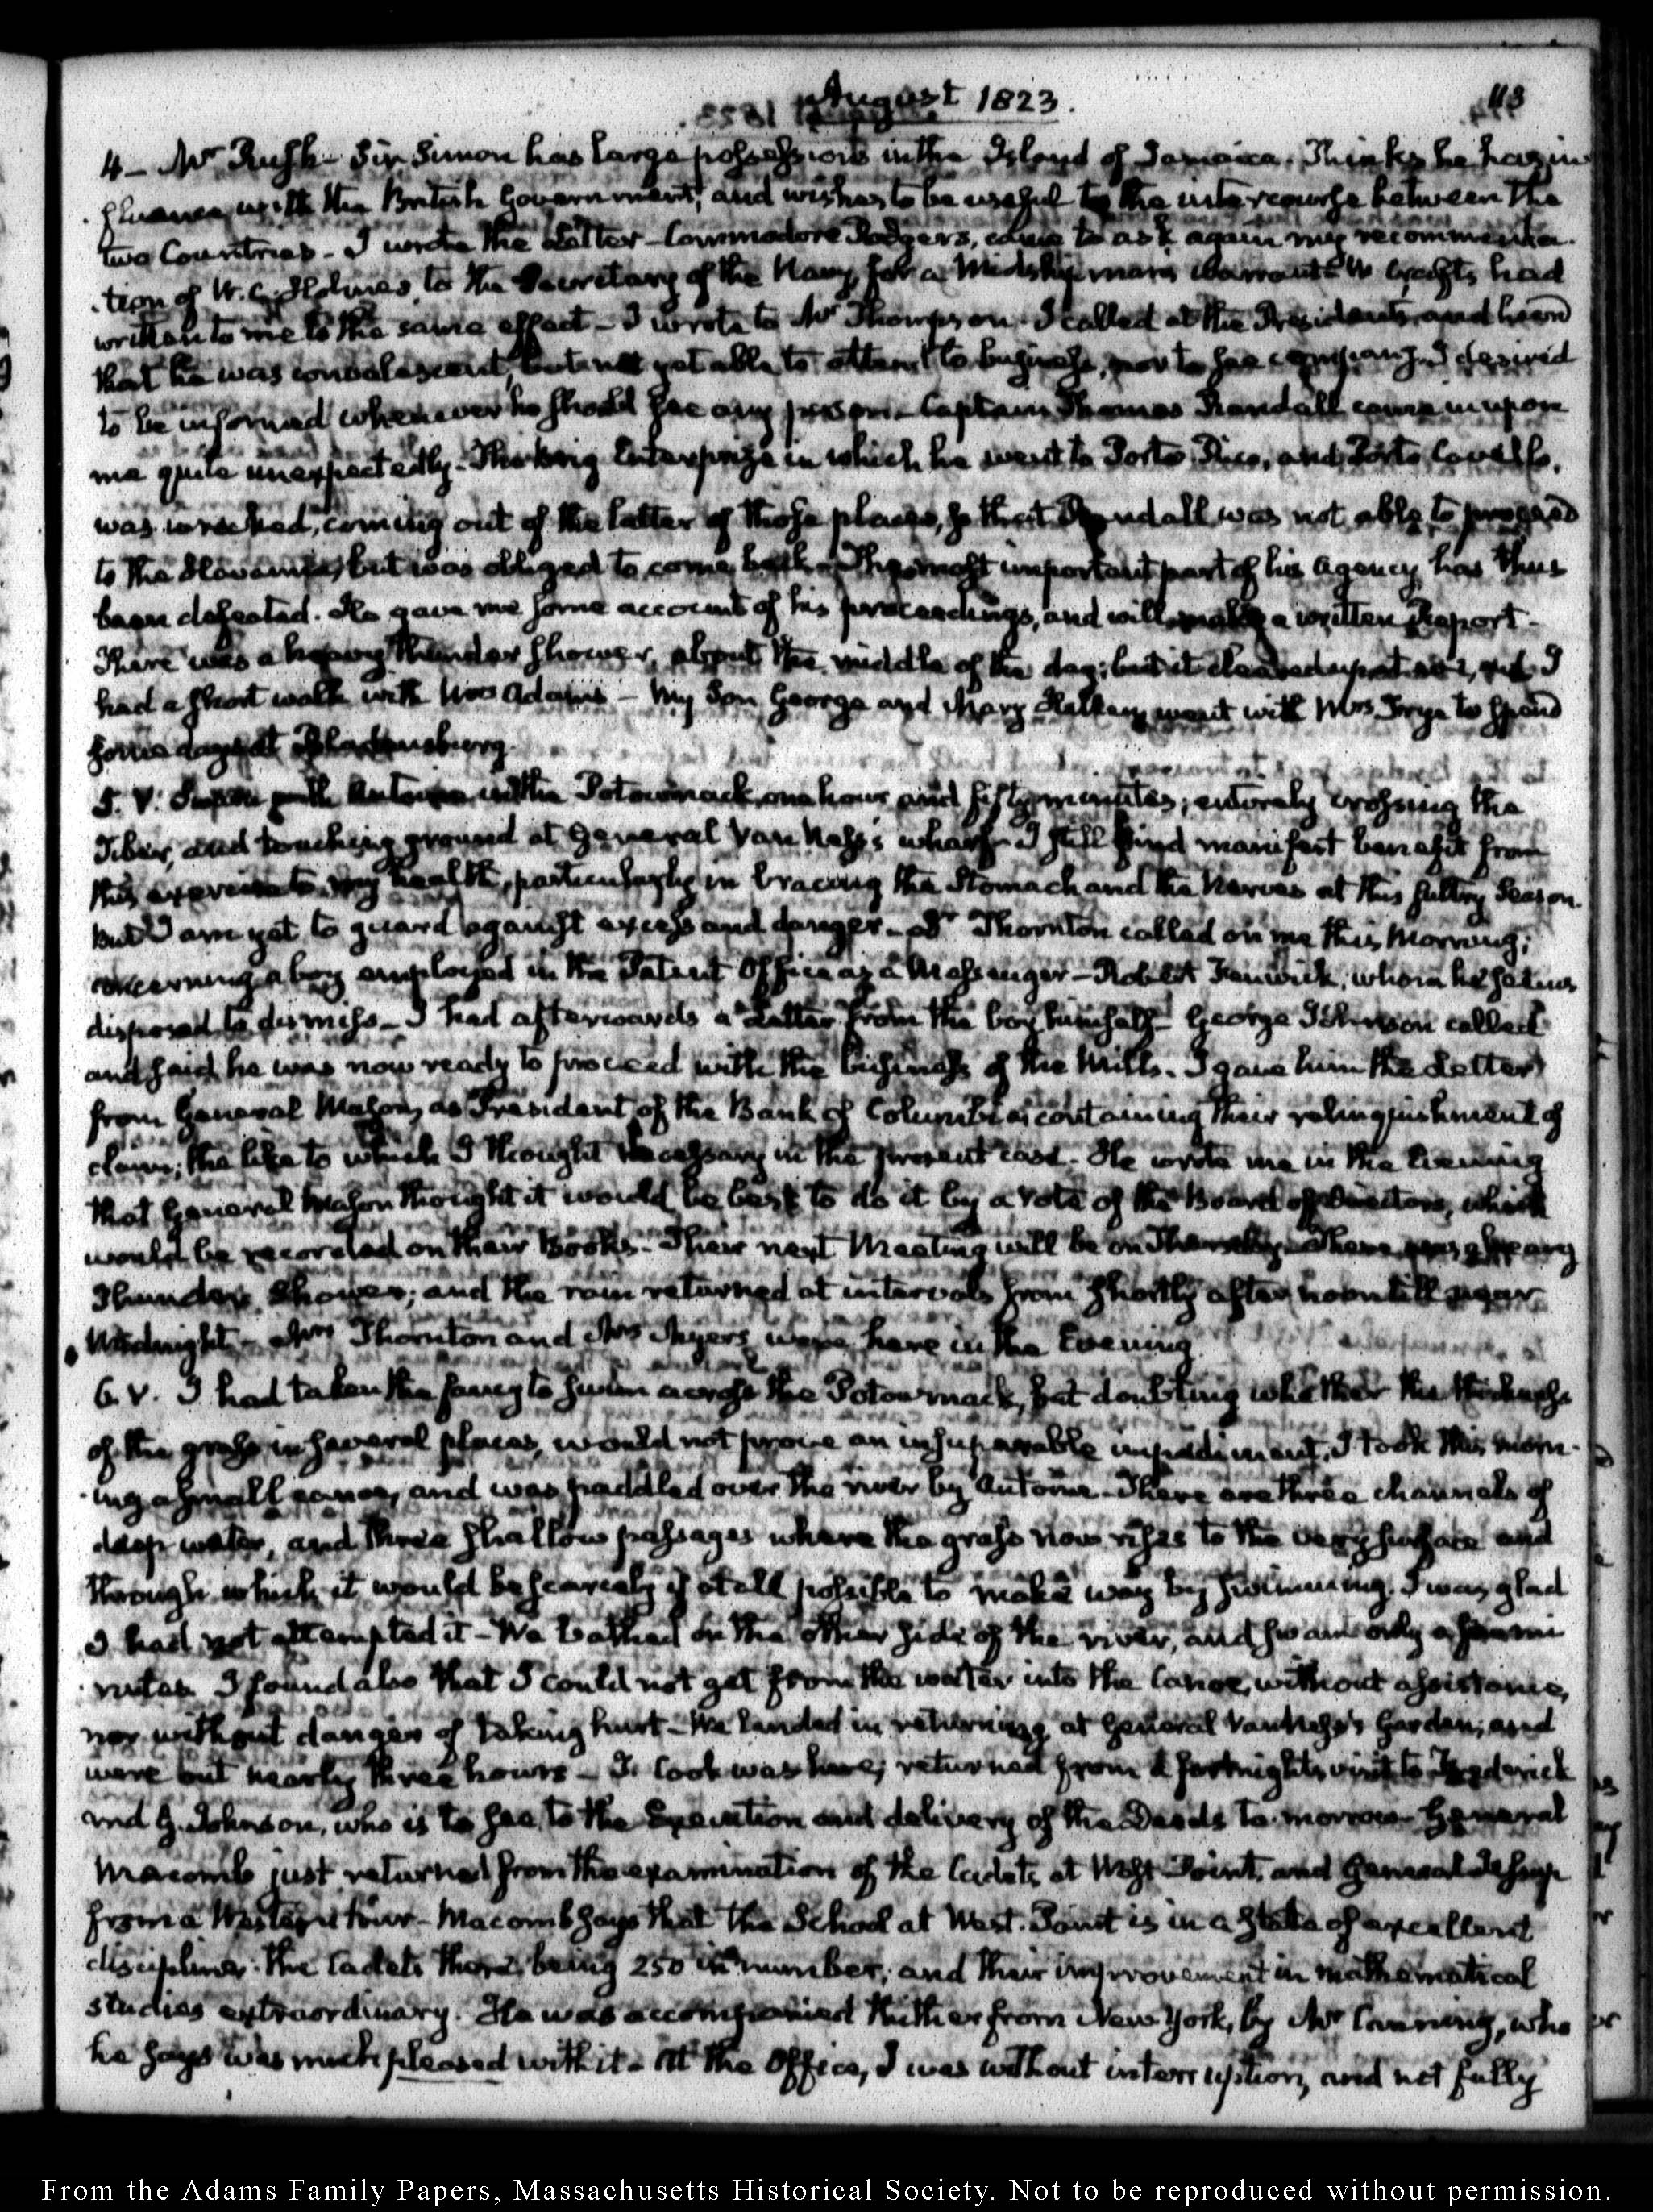 August 1823.
113
4 — Mr Rush — Sir Simon has large possessions in the Island of Jamaica. Thinks he has in
fluence with the British Government, and wishes to be useful to the intercourse between the
two Countries — I wrote the Letter — Commodore Rodgers, came to ask again my recommenda-
tion of W. C. Holmes to the Secretary of the Navy for a Midshipman's warrant — W. Crafts had
written to me to the same effect — I wrote to Mr Thompson. I called at the Presidents, and heard
that he was convalescent, but not yet able to attend to business, nor to see company. I desired
to be informed whenever he should see any person — Captain Thomas Randall came in upon
me quite unexpectedly. The brig Enterprize in which he went to Porto Rico, and Porto Cavello,
was wrecked, coming out of the latter of those places, so that Randall was not able to proceed
to the Havanna, but was obliged to come back — The most important part of his Agency has thus
been defeated. He gave me some account of his proceedings, and will make a written Report —
There was a heavy thunder shower, about the middle of the day; but it cleared up and I
had a short walk with Mrs Adams — My Son George and Mary Hellen went with Mrs Frye to spend
some days at Bladensburg.
5. V. Swam with Antoine in the Potowmack one hour and fifty minutes; entirely crossing the
Tiber, and touching ground at General Van Ness's wharf — I still find manifest benefit from
this exercise to my health, particularly in bracing the Stomach and the Nerves at this sultry Season.
But I am yet to guard against excess and danger — Dr Thornton called on me this Morning;
concerning a boy employed in the Patent Office as a Messenger — Robert Fenwick, whom he seems
disposed to dismiss — I had afterwards a Letter from the boy himself — George Johnson called
and said he was now ready to proceed with the business of the Mills. I gave him the Letter
from General Mason, as President of the Bank of Columbia; containing their relinquishment of
claim; the like to which I thought necessary in the present case. He wrote me in the Evening
that General Mason thought it would be best to do it by a vote of the Board of Directors, which
would be recorded on their Books — Their next Meeting will be on Thursday — There was a heavy
Thunder Shower; and the rain returned at intervals from shortly after noon till near
Midnight — Mrs Thornton and Mrs Myers were here in the Evening.
6. V. I had taken the fancy to swim across the Potowmack, but doubting whether the thickness
of the grass in several places, would not prove an insuperable impediment, I took this morn-
ing a small canoe, and was paddled over the river by Antoine — There are three channels of
deep water, and three shallow passages where the grass now rises to the very surface and
through which it would be scarcely if at all possible to make way by swimming. I was glad
I had not attempted it — We bathed on the other side of the river, and swam only a few mi
nutes. I found also that I could not get from the water into the Canoe, without assistance,
nor without danger of taking hurt — We landed in returning at General Van Ness's Garden; and
were out nearly three hours — J. Cook was here; returned from a fortnight's visit to Frederick
and G. Johnson, who is to see to the Execution and delivery of the Deeds to-morrow — General
Macomb just returned from the examination of the Cadets at West Point, and General Jessup
from a Western tour — Macomb says that the School at West-Point is in a State of excellent
discipline. The Cadets there, being 250 in number, and their improvement in mathematical
studies extraordinary. He was accompanied thither from New York, by Mr Canning, who
he says was much pleased with it — At the Office, I was without interruption, and not fully
From the Adams Family Papers, Massachusetts Historical Society. Not to be reproduced without permission.